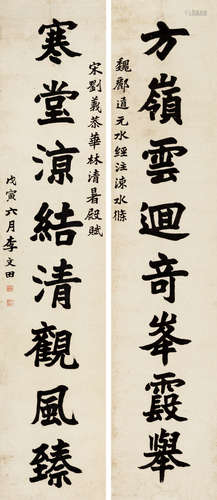 方嶺雲迴奇峯霞舉
魏酈道元水經注涑水條
寒堂涼結清觀風臻
宋劉義恭華林清暑殿賦
戊寅六月李文田